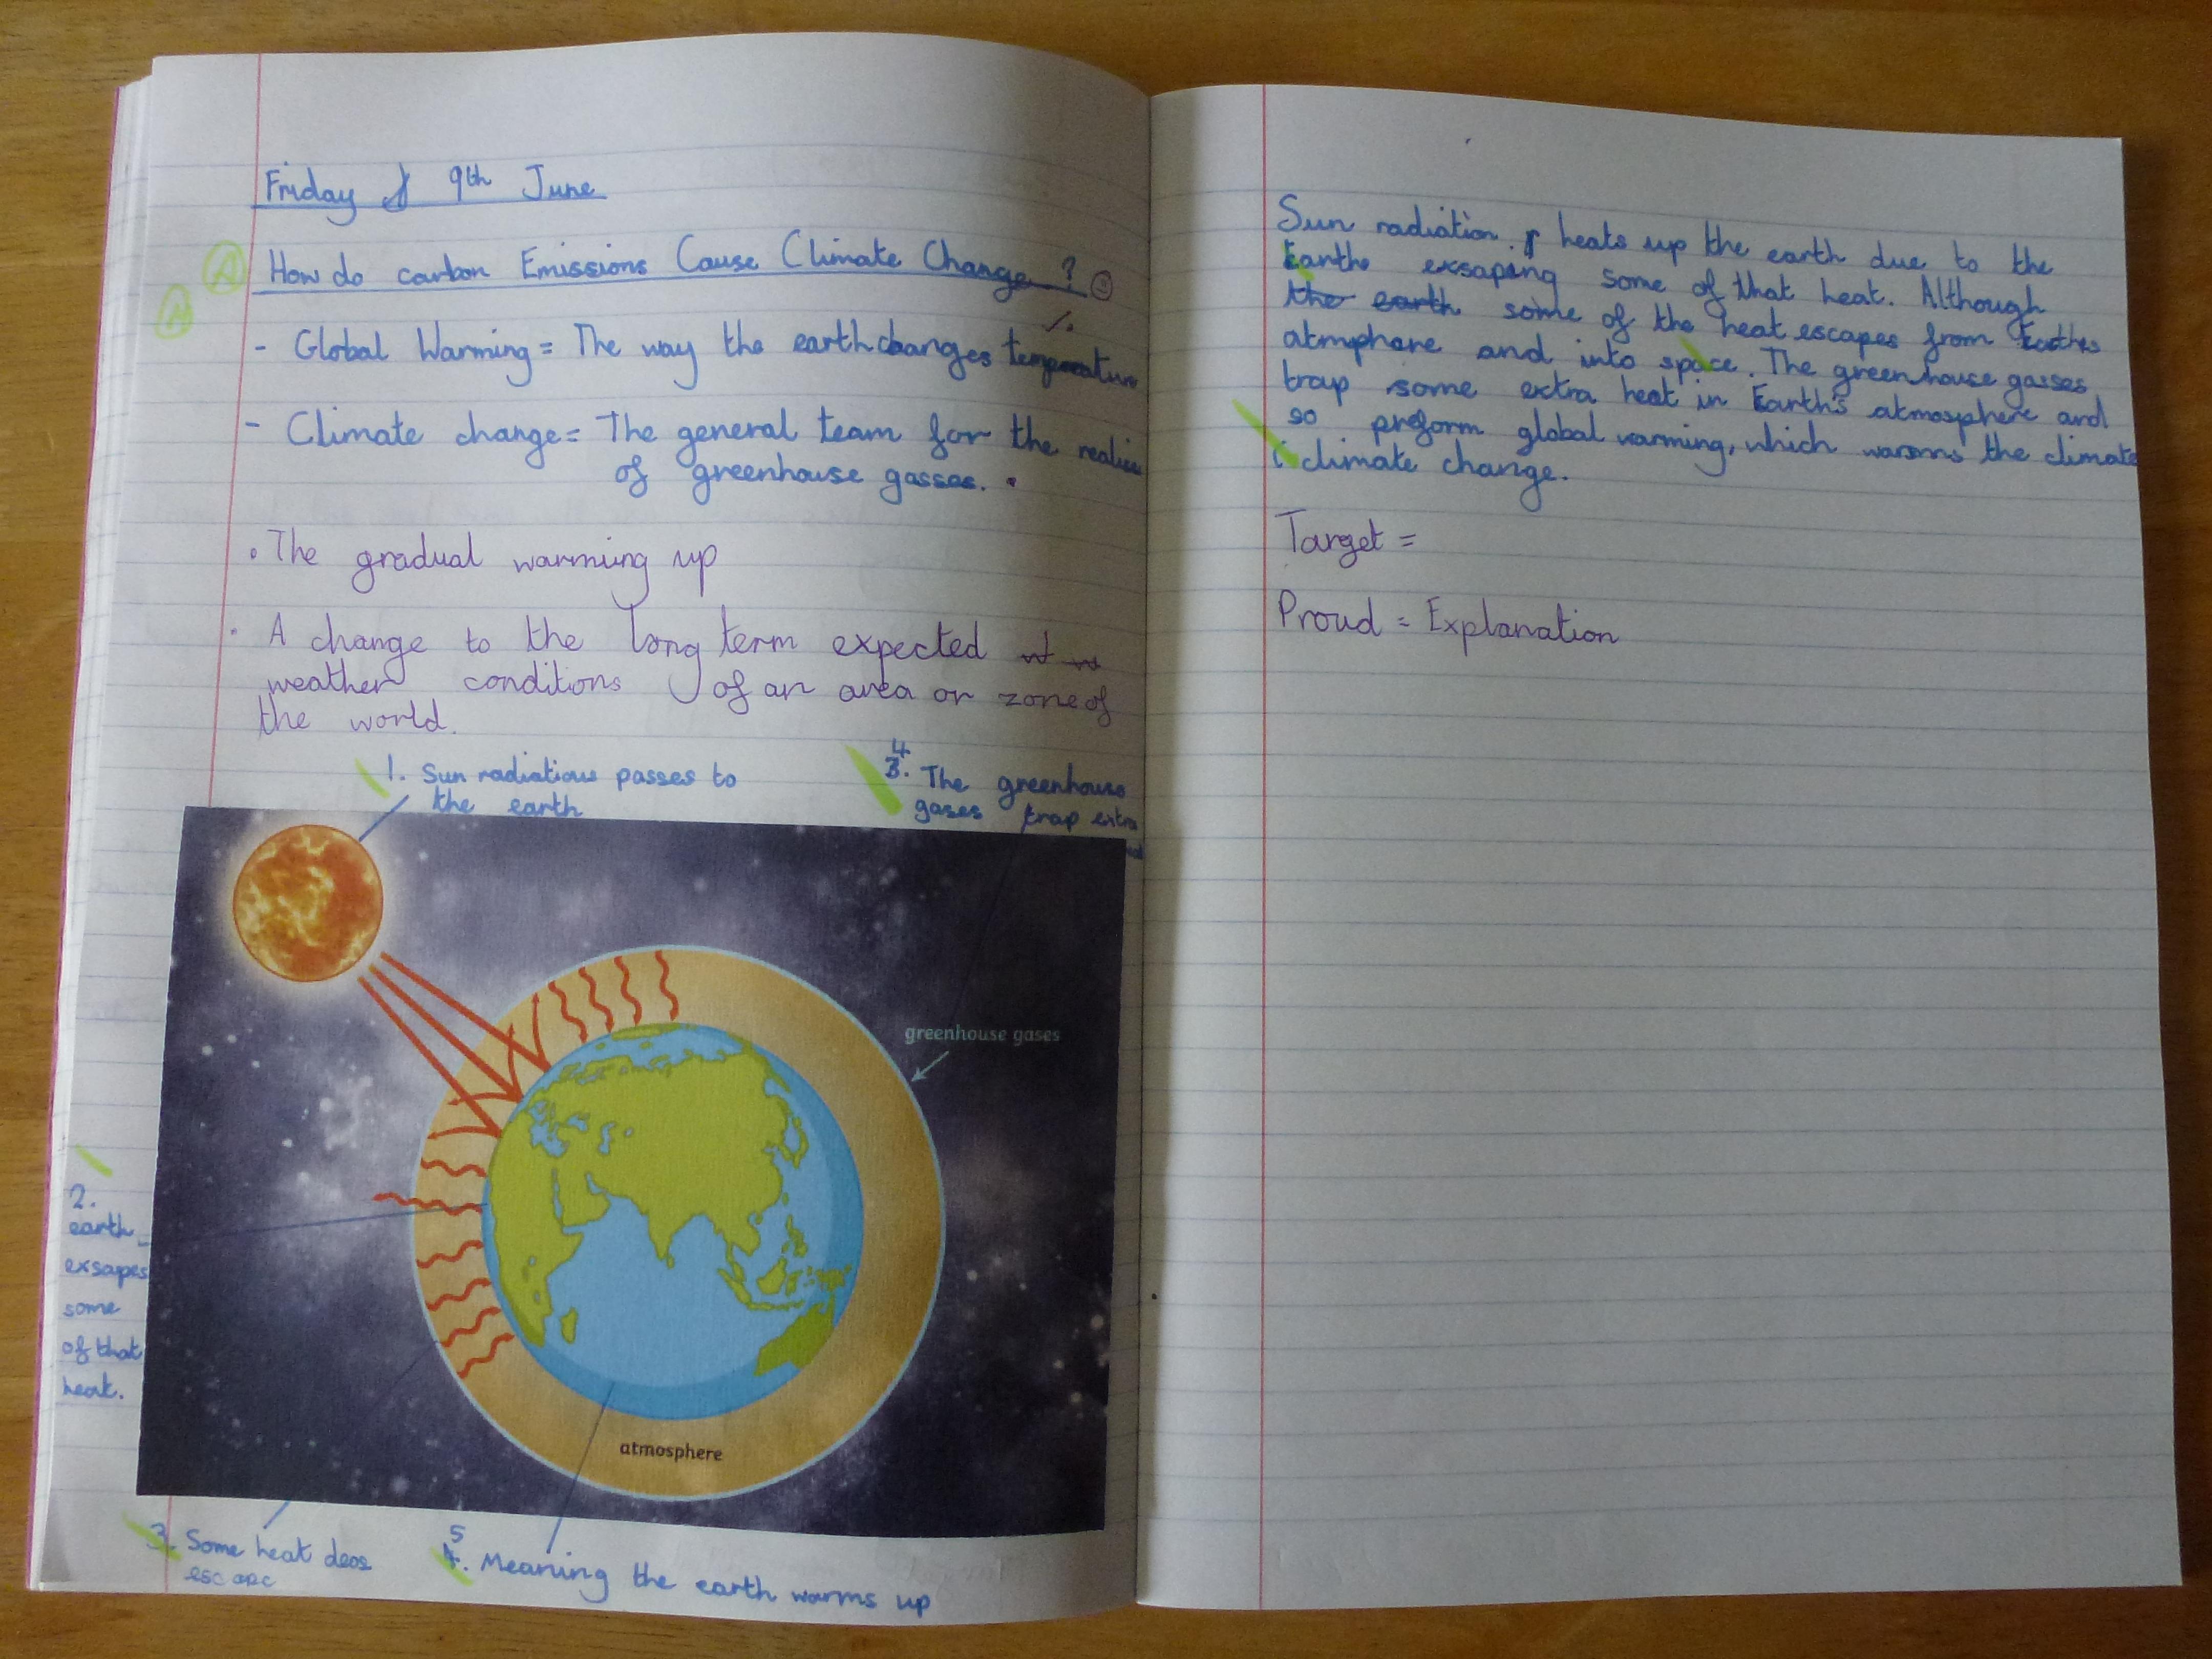 Friday 9th June
How do carbon Emissions Cause Climate Change ?
- Global Warming = The way the earth changes temperature
- Climate change = The general team for the
of greenhouse gasses.
• The gradual warming up
• A change to the long term expected
weather conditions of an area or zone of
the world.
1. Sun radiations passes to
the earth
4
3. The greenhouse
gases trap extra
greenhouse gases
atmosphere
2.
earth
exsapes
some
of that
heat.
3. Some heat deos
escape
5
4. Meaning the earth warms up
Sun radiation. heats up the earth due to the
Earths exsaping some of that heat. Although
the earth some of the heat escapes from Earths
atmphere and into space. The greenhouse gasses
trap some extra heat in Earth's atmosphere and
so preform global warming, which warms the climate
climate change.
Target =
Proud = Explanation